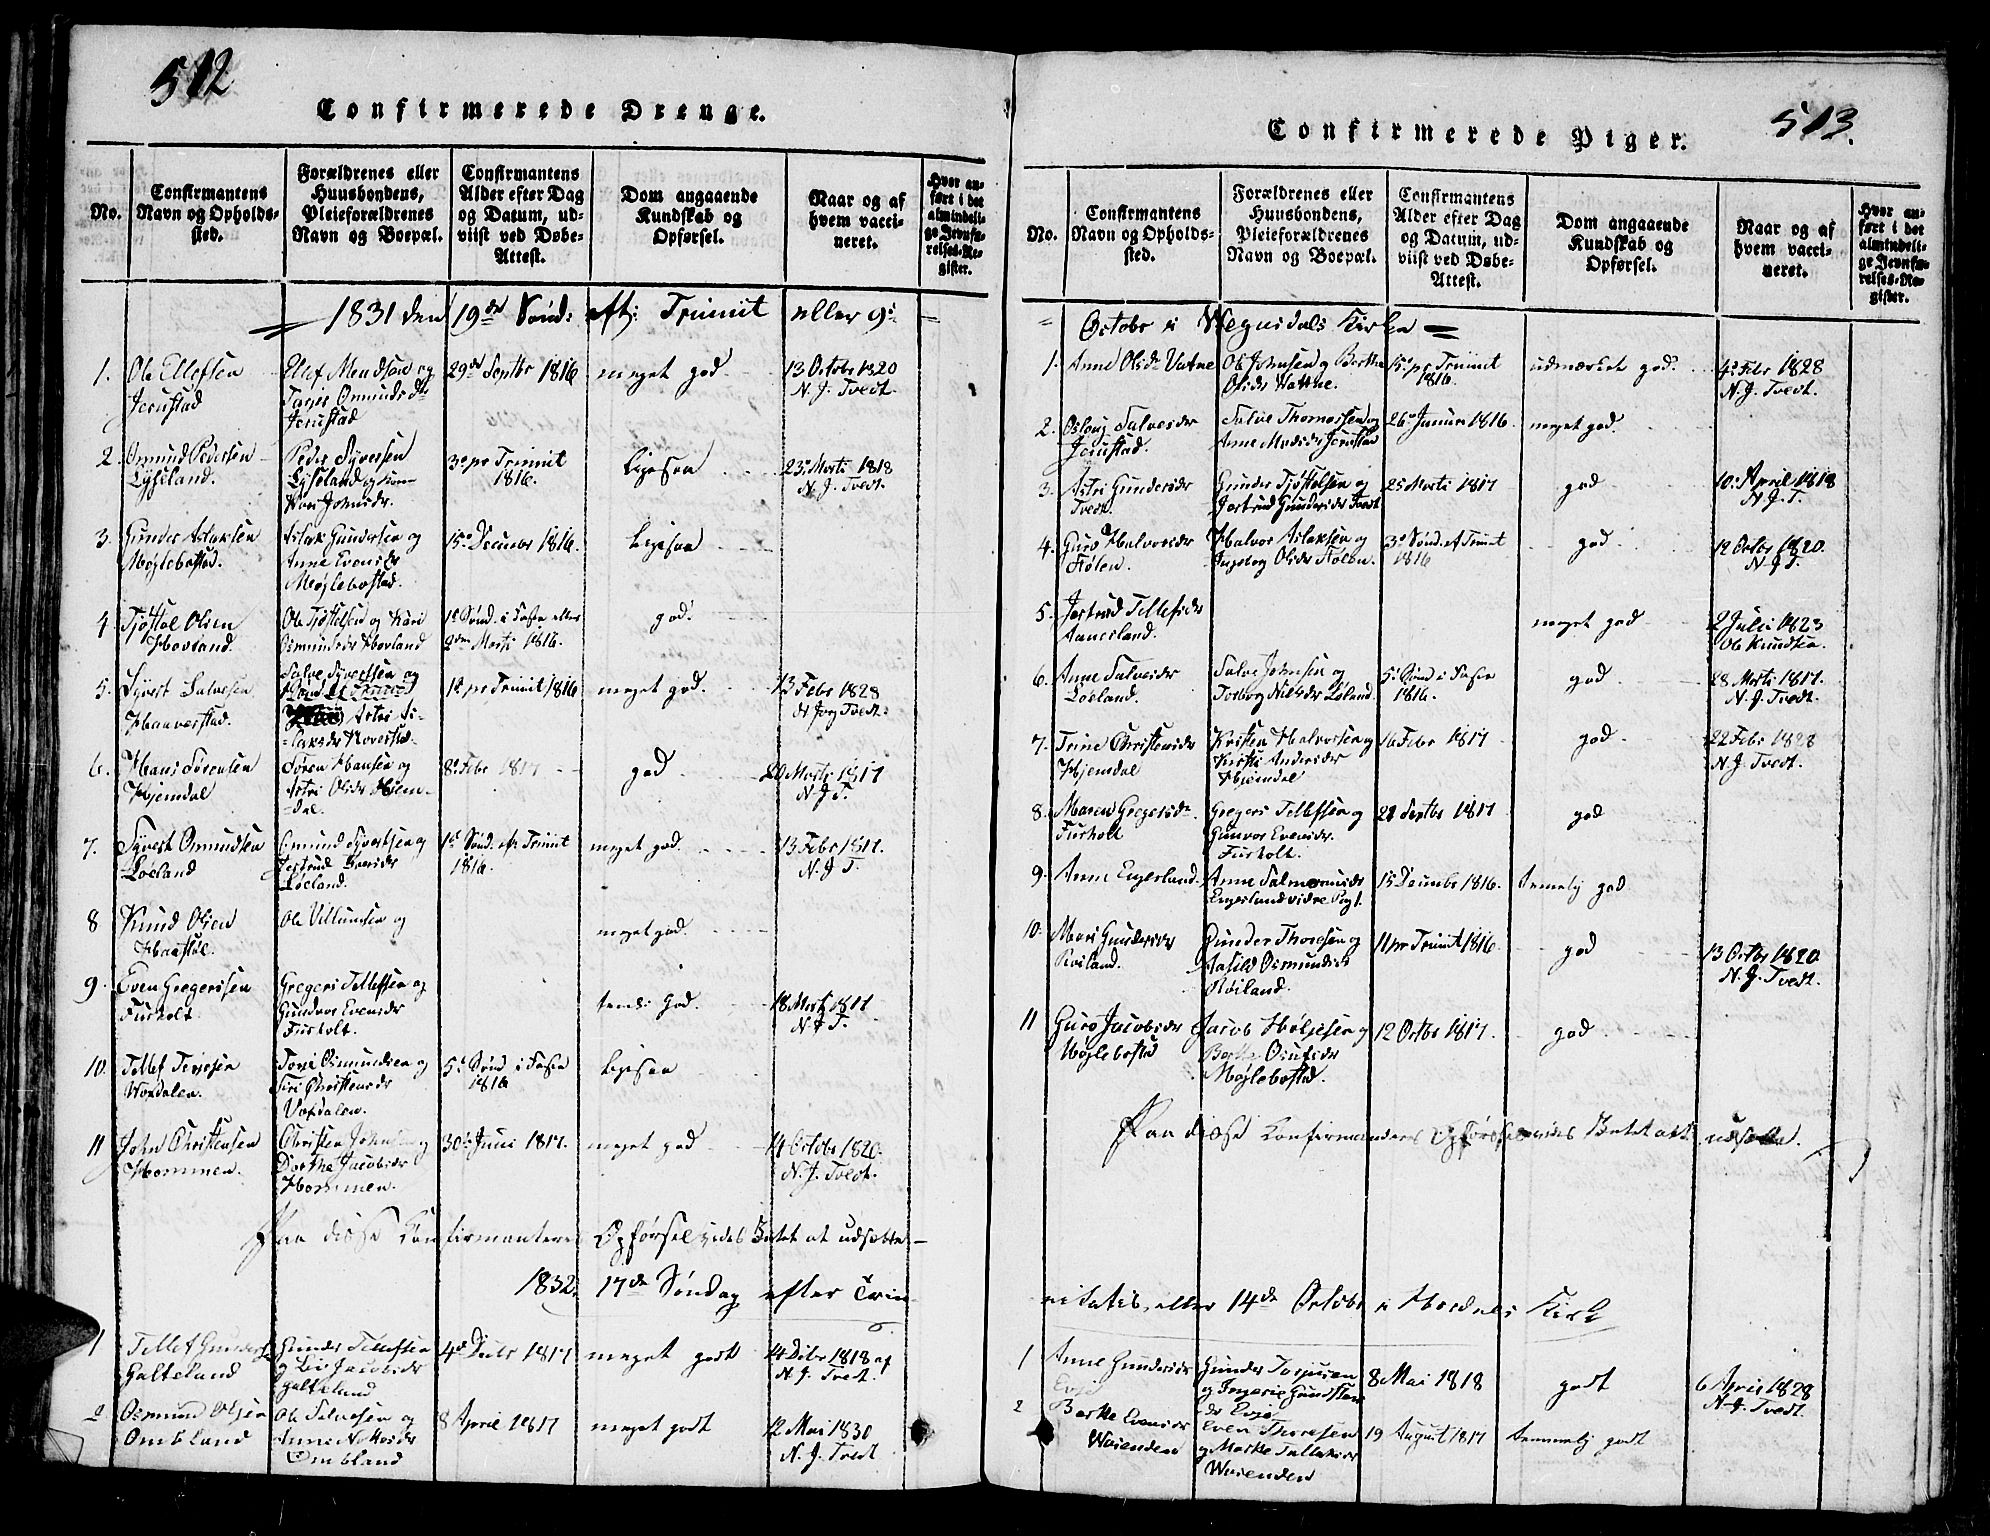 512
Confirmerede Drenge.
No.
Confirmantens
Navn og Opholds-
sted.
Forældrenes eller
Huusbondens,
Pleieforældrenes
Navn og Boepæl.
Confirmantens
Alder efter Dag
og Datum, ud-
viist ved Døbe-
Attest.
Dom angaaende
Kundskab og
Opførsel.
Naar og af
hvem vacci-
neret.
Hvor an-
ført i det
almindeli-
ge Jevnfø-
relses-Re-
gister.
1831 den 19de Sønd: eft: Trinit eller 9de
1. Ole Ellefsen
Jerustad
Ellef
og
Jerustad
29de Septbr 1816
meget god
13 Octobr 1820
N. J. Tvedt.
2. Osmund Pedersen
Lyseland.
Peder Syversen
Lyseland og
3de pr Trinit
1816.
Ligesaa
23de Marti 1818
N. J. Tvedt.
3. Gunder Aslaksen
Møglebostad.
Aslak Gundersen og
Anne Evensdr
Møglebostad.
15de Decembr 1816.
Ligesaa
4. Tjøstol Olsen
Hovland.
Ole Tjøstelsen og Kari
Osmundsdr Hovland
1te Sønd. i Faste eller
Marti 1816.
god
5. Syvert Salvesen
Haaverstad.
Salve Syvertsen og
Astri
1te pr Trinit 1816
meget god.
13 Febr 1828
N. Jørg Tvedt.
6. Hans Sørensen
Hjemdal
Søren Hansen og
Astri Olsdr Hjem-
dal.
8de Febr 1817
god
20 Marti 1817
N. J. T.
7. Syvert Osmundsen
Løeland
Osmund Syvertsen og
Jertrud Evensdr
Løeland.
1te Sønd. eft Trinit
1816.
meget god.
13 Febr 1817.
N. J. T.
8 Knud Olsen
Haastøl.
Ole Villumsen og
meget god.
9. Even Gregersen
Furholt.
Gregers Tellefsen og
Gundvor Evensdr
Furholt.
temel: God.
18 Marti 1817
N. J. T.
10. Tellef Terjesen
Vordalen.
Terje Osmundsen og
Siri Christensdr
5te Sønd i Faste
1816
Ligesaa
11 John Christensen
Hommen.
Christen Johnsen og
Dorthe Jacobsdr
Hommen.
30de Juni 1817.
meget god
14 Octobr 1820.
N. J. Tvedt.
Paa disse Confirmanters Opførsel vides Intet at udsætte
1832. 17de Søndag efter Trin-
1 Tellef Gundersen
Galteland
Gunder Tellefsen
og Jacobsdr
Galteland
4de Decbr 1817
meget godt
14 Debr 1818 af
N. J. Tvedt.
2 Osmund Olsen
Ombland
Ole Salvesen og
Anne
Ombland
8 April 1817
meget godt
12 Mai 1830
N. J. Tvedt
513.
Confirmerede Piger.
No.
Confirmantens
Navn og Opholds-
sted.
Forældrenes eller
Huusbondens,
Pleieforældrenes
Navn og Boepæl.
Confirmantens
Alder efter Dag
og Datum, ud-
viist ved Døbe-
Attest.
Dom angaaende
Kundskab og
Opførsel.
Naar og af
hvem vacci-
neret.
Hvor an-
ført i det
almindeli-
ge Jevnfø-
relses-Re-
gister.
Octobr i Vegusdals Kirke
1. Anne Olsdr Vatne
Ole Johnsen og Berthe
Olsdr
15de pr Trinit
1816.
udmærket god.
4de Febr 1828
N. J. Tvedt.
2. Oslaug Salvesdr
Jerustad.
Salve Thomassen og
Anne Madsdr Jerustad
26de Januar 1816.
meget god.
3. Astri Gundersdr
Tvedt.
Gunder Tjøstelsen og
Jertrud Gundersdr Tvedt
25 Marti 1817
god
10de April 1818
N. J. T.
4. Guro Halvorsdr
Stølen.
Halvor Aslaksen og
Ingeborg Olsdr Stølen.
3de Sønd. eft Trinit
1816
god
12 Octbr 1820.
N. J. T.
5. Jertrud Tellefsdr
Aanesland.
meget god
2 Juli 1823
Ole Knudsen.
6. Anne Salvesdr
Løeland.
Salve Johnsen og
Torborg Nilsdr Løland.
5te Sønd i Faste
1816.
god
28 Marti 1817.
N. J. Tvedt.
7. Trine Christensdr
Hjemdal
Kristen Halvorsen og
Kirsti Andersdr
Hjemdal
16 Febr 1817
god
22 Febr 1828
N. J. Tvedt.
8. Maren Gregersdr
Furholt
Gregers Tellefsen og
Gunvor Evensdr
Furholt.
21 Septbr 1817
god
9. Anne Engesland.
Anne Salmonsdr
Engesland
15 Decembr 1816.
temmelig god
10. Mari Gundersdr
Røiland.
Gunder Thoresen og
Aasild Osmundsdr
Røiland.
11 pr Trinit 1816.
god
13 Octbr 1820
N. J. Tvedt.
11 Guro Jacobsdr
Møglebostad
Jacob
og
Berthe
Møglebostad.
12 Octbr 1817.
god
Paa disse Confirmanders Opførsel vides Intet at udsætte.
nitatis, eller 14de Octobr i Hordnes Kirke
1 Anne Gundersdr
Evje
Gunder
og
Evje
8 Mai 1818
godt
6 April 1828
N. J. Tvedt.
2 Berthe Evensdr
Waienden
Even Thoresen
og Marthe
Waienden
19 August 1817
temmelig godt